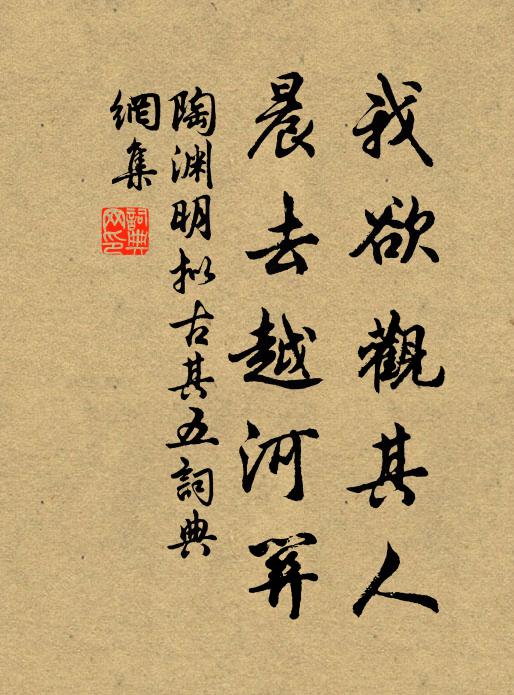 我欲觀其人
晨去越河關
陶渊明拟古其五詞典
網集
詞典
网印